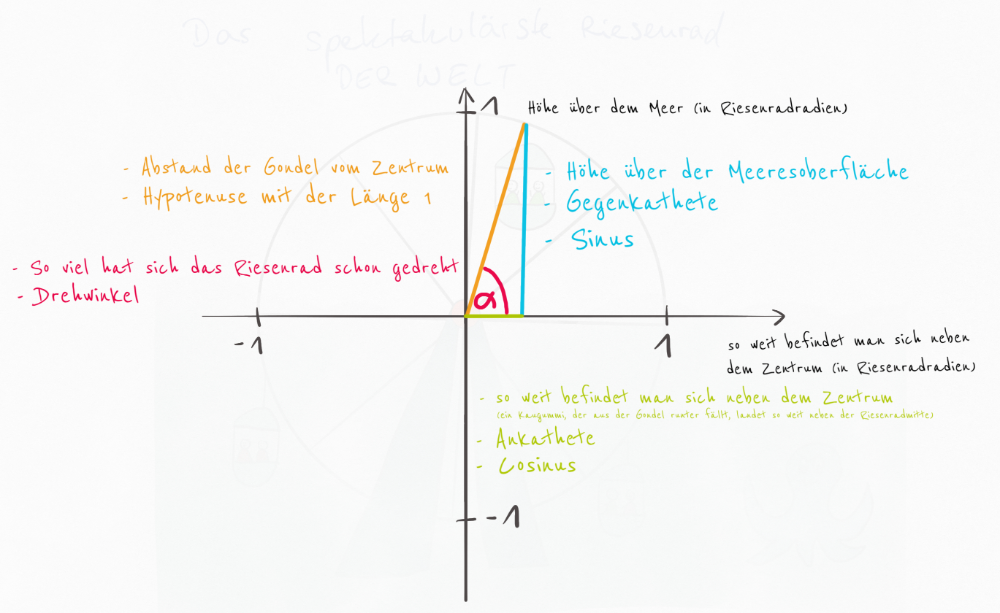 Das spektakulärste Riesenrad
DER WELT
1
Höhe über dem Meer (in Riesenradradien)
- Abstand der Gondel vom Zentrum
- Hypotenuse mit der Länge 1
- Höhe über der Meeresoberfläche
- Gegenkathete
- Sinus
- So viel hat sich das Riesenrad schon gedreht
- Drehwinkel
α
-1
1
so weit befindet man sich neben
dem Zentrum (in Riesenradradien)
- so weit befindet man sich neben dem Zentrum
(ein Kaugummi, der aus der Gondel runter fällt, landet so weit neben der Riesenradmitte)
- Ankathete
- Cosinus
-1